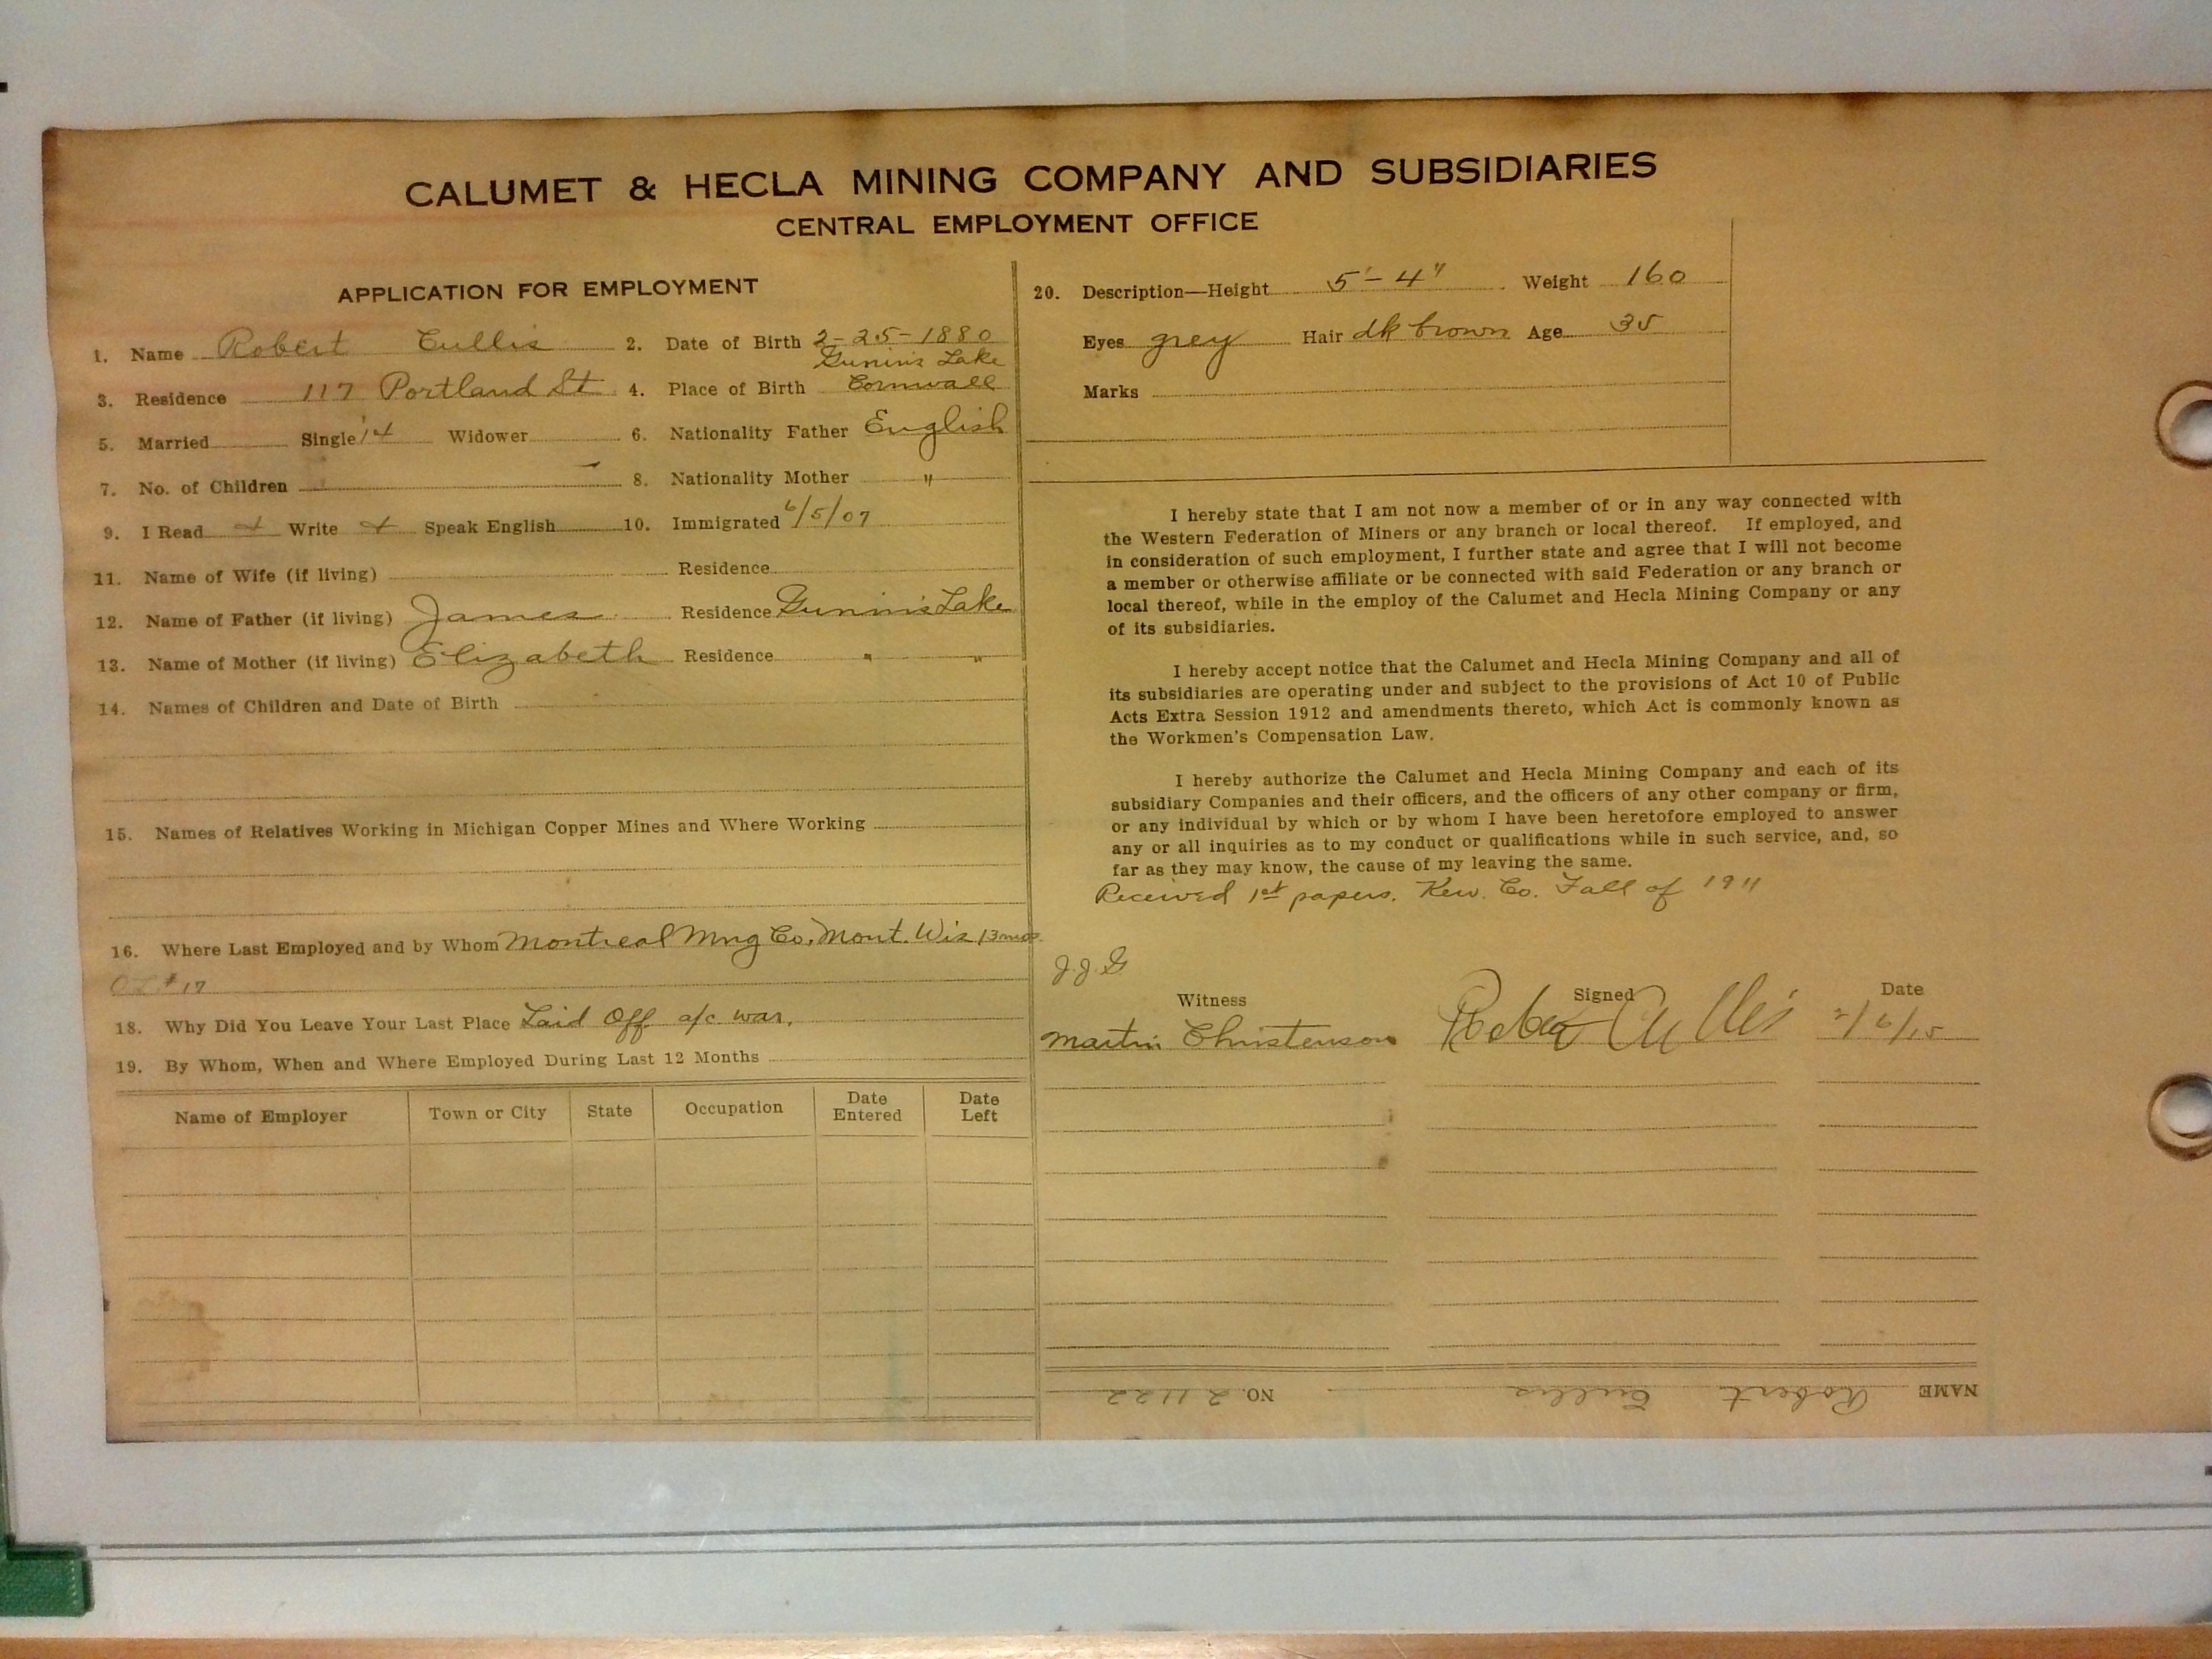 CALUMET & HECLA MINING COMPANY AND SUBSIDIARIES
CENTRAL EMPLOYMENT OFFICE
APPLICATION FOR EMPLOYMENT
1. Name Robert Cullis 2. Date of Birth 2-25-1880
Gunnis Lake
3. Residence 117 Portland St 4. Place of Birth Cornwall
5. Married Single Widower 6. Nationality Father English
7. No. of Children 8. Nationality Mother "
9. I Read Write Speak English 10. Immigrated 6/5/07
11. Name of Wife (if living) Residence
12. Name of Father (if living) James Residence Gunnis Lake
13. Name of Mother (if living) Elizabeth Residence " "
14. Names of Children and Date of Birth
15. Names of Relatives Working in Michigan Copper Mines and Where Working
16. Where Last Employed and by Whom Montreal Mng Co. Mont. Wis 13 mos.
#17
18. Why Did You Leave Your Last Place Laid Off a/c war.
19. By Whom, When and Where Employed During Last 12 Months
Name of Employer Town or City State Occupation Date Entered Date Left
20. Description—Height 5'-4" Weight 160
Eyes grey Hair dk brown Age 35
Marks
I hereby state that I am not now a member of or in any way connected with
the Western Federation of Miners or any branch or local thereof. If employed, and
in consideration of such employment, I further state and agree that I will not become
a member or otherwise affiliate or be connected with said Federation or any branch or
local thereof, while in the employ of the Calumet and Hecla Mining Company or any
of its subsidiaries.
I hereby accept notice that the Calumet and Hecla Mining Company and all of
its subsidiaries are operating under and subject to the provisions of Act 10 of Public
Acts Extra Session 1912 and amendments thereto, which Act is commonly known as
the Workmen's Compensation Law.
I hereby authorize the Calumet and Hecla Mining Company and each of its
subsidiary Companies and their officers, and the officers of any other company or firm,
or any individual by which or by whom I have been heretofore employed to answer
any or all inquiries as to my conduct or qualifications while in such service, and, so
far as they may know, the cause of my leaving the same.
Received 1st papers. Kew. Co. Fall of 1911
J.J.G
Witness Signed Date
Martin Christenson Robert Cullis 2/6/15
NAME Robert Cullis NO. 21122